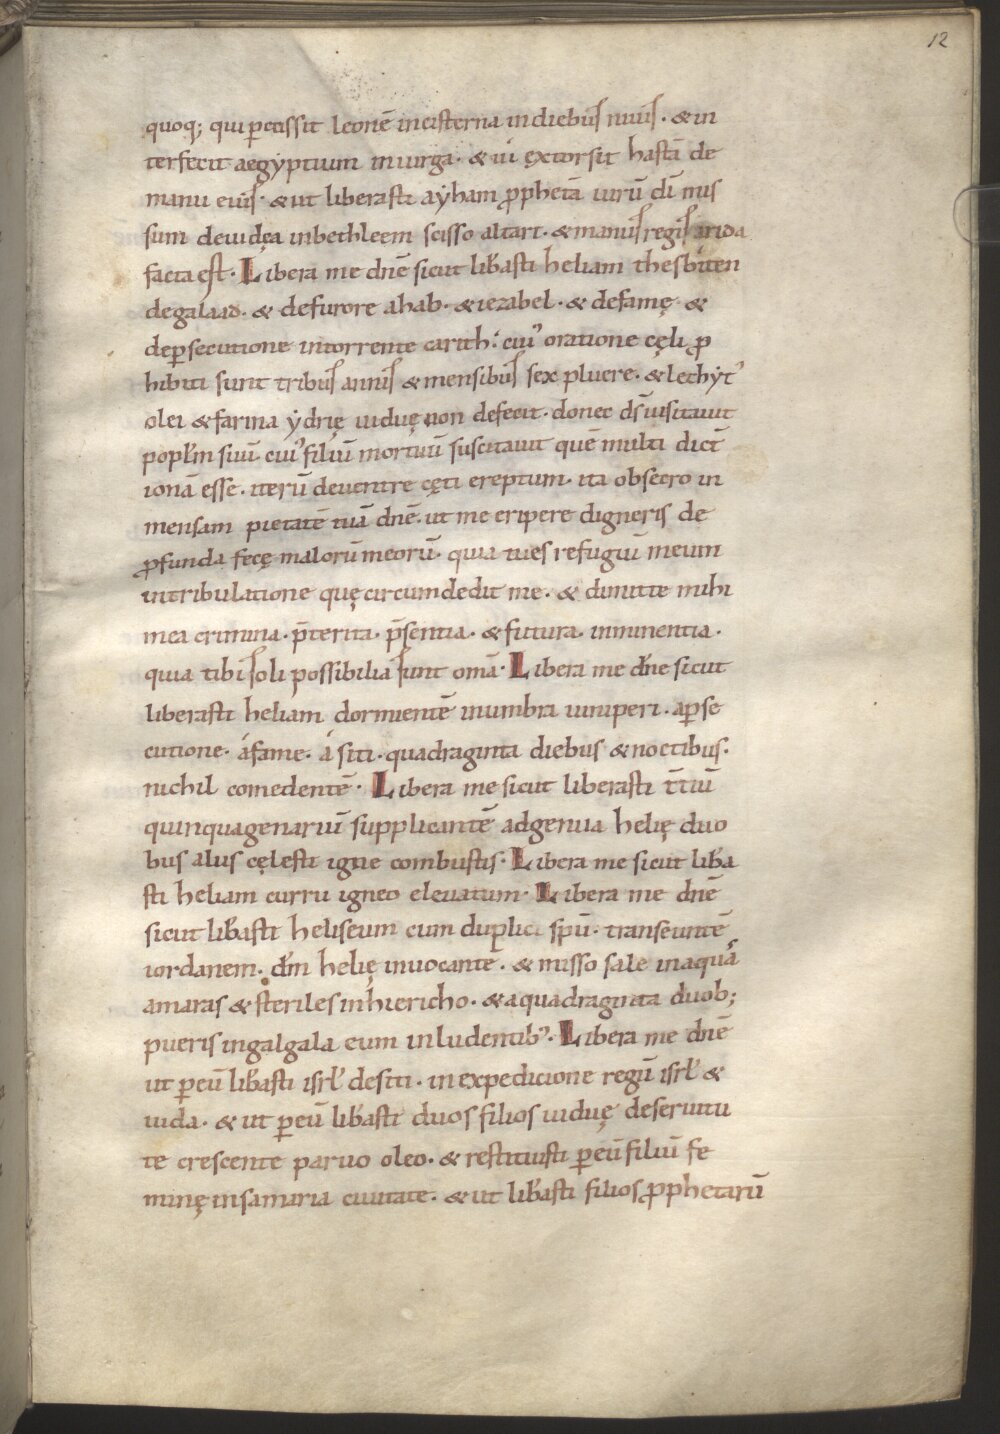 12
quoq; qui percussit leonē in cisterna in diebus niuis. & in
terfecit aegyptium in uirga. & ui extorsit hastā de
manu eius. & ut liberasti ayham ꝓphetā uirū dī mis
sum de iudęa in bethleem scisso altari. & manus regis arida
facta est. Libera me dnē sicut lib̄asti heliam thesbiten
de galaad. & de furore ahab. & iezabel. & de famę. &
de ꝑsecutione in torrente carith: cui᾽ oratione cęli ꝓ
hibiti sunt tribus annis & mensibus sex pluere. & lechyt᾽
olei & farina ydrię uiduę non defecit. donec ds̄ uisitauit
popl̄m suū. cui᾽ filiū mortuū suscitauit quē multi dic̄t
ionā esse. iterū de uentre cęti ereptum. ita obsecro in
mensam pietatē tuā dnē. ut me eripere digneris de
ꝓfunda fecę malorū meorū. quia tu es refugiū meum
in tribulatione quę circumdedit me. & dimitte mihi
mea crimina. p̄terita. p̄sentia. & futura. inminentia.
quia tibi soli possibilia sunt omā. Libera me dn̄e sicut
liberasti heliam dormientē in umbra iuniperi. a ꝑse
cutione. á fame. á siti. quadraginta diebus & noctibus.
nichil comedentē. Libera me sicut liberasti t̄tiū
quinquagenariū supplicantē ad genua helię duo
bus aliis cęlesti igne combustis. Libera me sicut lib̄a
sti heliam curru igneo eleuatum. Libera me dnē
sicut lib̄asti heliseum cum duplici spū. transeuntē
iordanem. dm̄ helię inuocantē. & misso sale in aquas
amaras & steriles in hiericho. & a quadraginta duob;
pueris in galgala eum inludentib᾽. Libera me dnē
ut ꝑ eū lib̄asti isrl̄ de siti. in expedicione regū isrl̄ &
iuda. & ut ꝑ eū lib̄asti duos filios uiduę de seruitu
te crescente paruo oleo. & restituisti ꝑ eū filiū fe
minę in samaria ciuitate. & ut lib̄asti filios ꝓphetarū